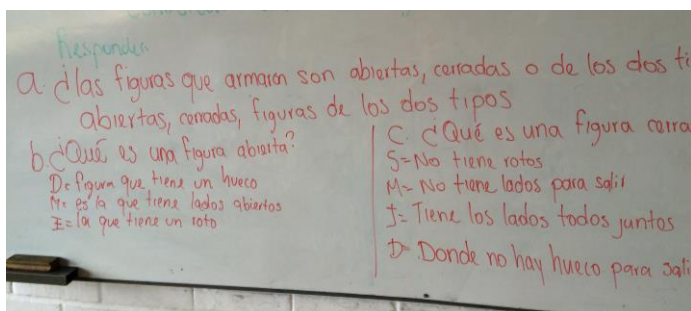 Responder
a. ¿las figuras que armaron son abiertas, cerradas o de los dos ti
abiertas, cerradas, figuras de los dos tipos
b. ¿Qué es una figura abierta?
D= figura que tiene un hueco
M= es la que tiene lados abiertos
I= la que tiene un roto
C. ¿Qué es una figura cerra
S= No tiene rotos
M= No tiene lados para salir
J= Tiene los lados todos juntos
D= Donde no hay hueco para sali